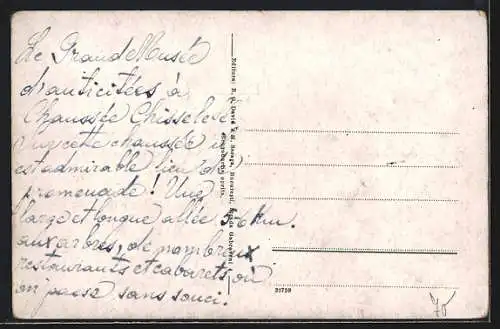 Le Grand Musée
d'anticitées à
Chaussée Ghisseleve
cette chaussée
est admirable lieu de
promenade! Une
large et longue allée 5-6 km.
aux arbres, de nombreux
restaurants et cabarets, où
on passe sans souci!
Reproducerea oprita.
21759
70